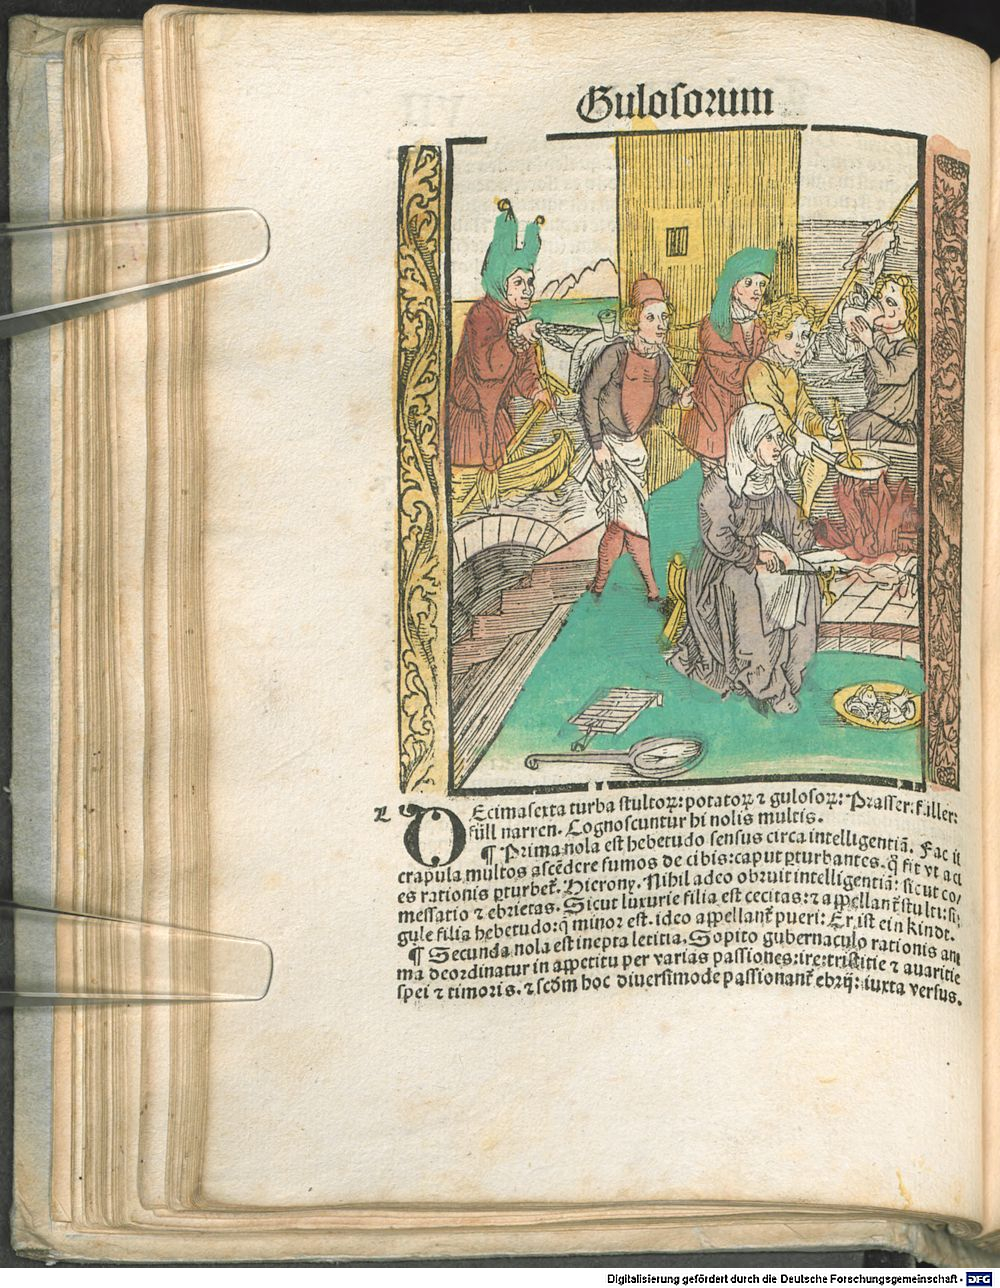 Gulosorum
L DEcimasexta turba stultoꝝ: potatoꝝ ⁊ gulosoꝝ: Prasser: filler:
füll narren. Cognoscuntur hi nolis multis.
¶ Prima nola est hebetudo sensus circa intelligentiā. Fac il
crapula multos ascēdere fumos de cibis: caput ꝑturbantes. ꝙ̄ fit vt aci
es rationis ꝑturbet᷑. Hierony. Nihil adeo obruit intelligentiā: sicut co/
messatio ⁊ ebrietas. Sicut luxurie filia est cecitas: ⁊ appellant᷑ stulti: si:
gule filia hebetudo: ꝙ̄ minor est. ideo appellant᷑ pueri: Er ist ein kindt.
¶ Secunda nola est inepta letitia. Sopito gubernaculo rationis ani
ma deordinatur in appetitu per varias passiones: ire: tristitie ⁊ auaritie
spei ⁊ timoris. ⁊ scďm hoc diuersimode passionant᷑ ebrij: iuxta versus.
Digitalisierung gefördert durch die Deutsche Forschungsgemeinschaft - DFG